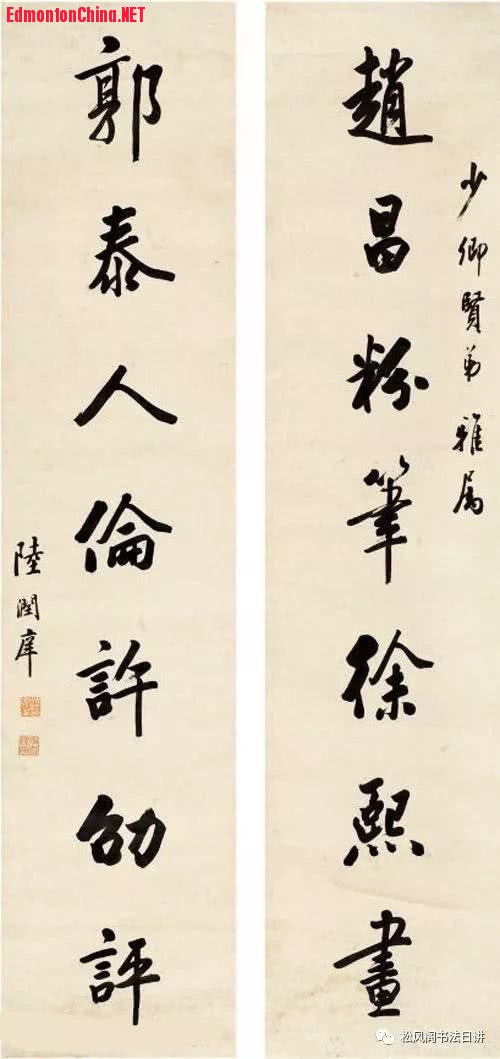 EdmontonChina.NET
少卿賢弟雅属
趙昌粉筆徐熙畫
郭泰人倫許劭評
陸潤庠
松风阁书法日讲